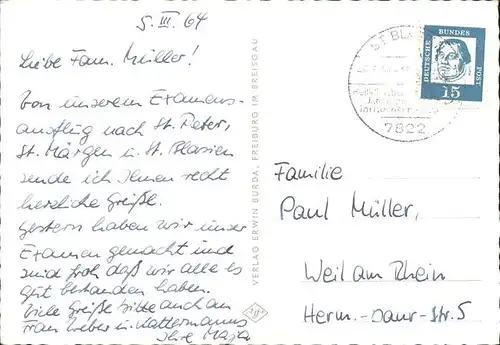 5. III. 64
Liebe Fam. Müller!
Von unserem Examens-
ausflug nach St. Peter,
St. Märgen u. St. Blasien
sende ich Ihnen recht
herzliche Grüße.
Gestern haben wir unser
Examen gemacht und
sind froh daß wir alle es
gut bestanden haben.
Viele Grüße bitte auch an
Frau Weber u. Kattermanns
Ihre Maja
VERLAG ERWIN BURDA, FREIBURG IM BREISGAU
ST BLA
7822
DEUTSCHE BUNDES POST
15
Familie
Paul Müller,
Weil am Rhein
Herm.-Daur-Str. 5